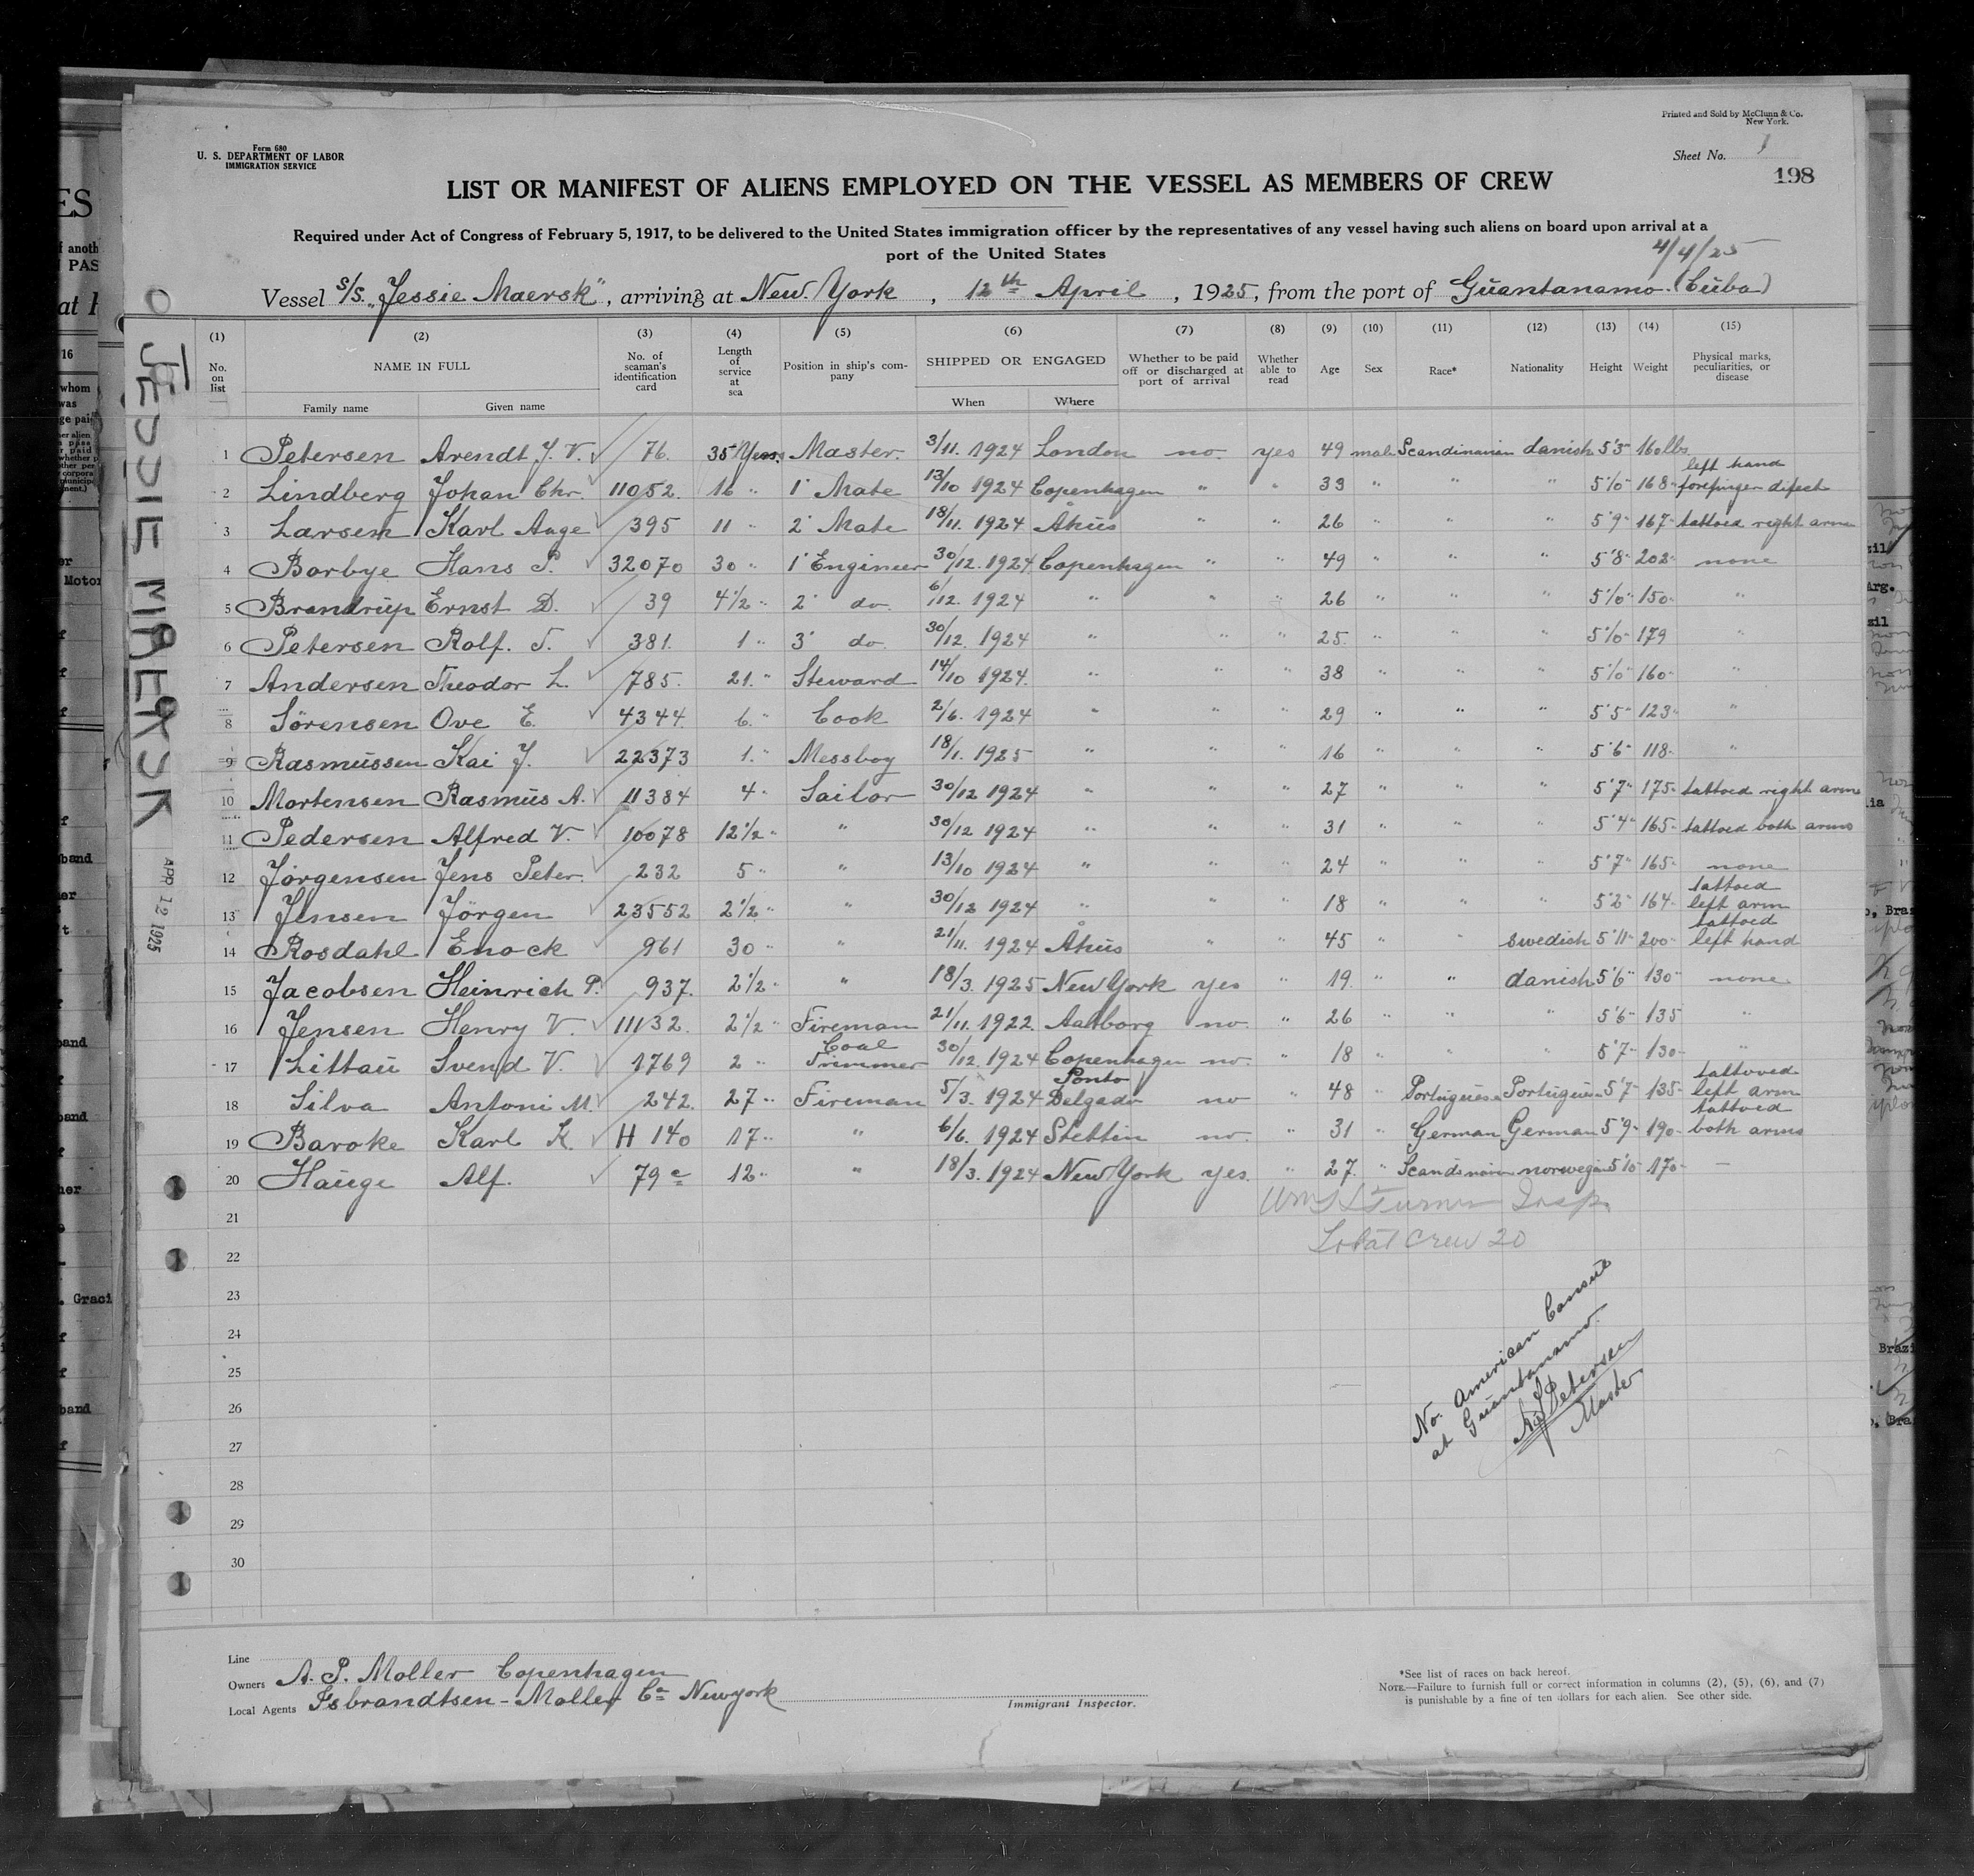 Form 680
U. S. DEPARTMENT OF LABOR
IMMIGRATION SERVICE
Printed and Sold by McClunn & Co.
New York.
Sheet No. 1
198
LIST OR MANIFEST OF ALIENS EMPLOYED ON THE VESSEL AS MEMBERS OF CREW
Required under Act of Congress of February 5, 1917, to be delivered to the United States immigration officer by the representatives of any vessel having such aliens on board upon arrival at a
port of the United States
4/4/25
Vessel S/S. "Jessie Maersk", arriving at New York, 12th April, 1925, from the port of Guantanamo (Cuba)
(1) (2) (3) (4) (5) (6) (7) (8) (9) (10) (11) (12) (13) (14) (15)
No. on list NAME IN FULL No. of seaman's identification card Length of service at sea Position in ship's company SHIPPED OR ENGAGED Whether to be paid off or discharged at port of arrival Whether able to read Age Sex Race* Nationality Height Weight Physical marks, peculiarities, or disease
Family name Given name When Where
1 Petersen Arendt J. V. 76. 35 Years Master. 3/11. 1924 London no. yes 49 male Scandinavian danish 5'3" 160 lbs
2 Lindberg Johan Chr. 11052. 16 " 1' Mate 13/10 1924 Copenhagen " " 39 " " " 5'10" 168" left hand forefinger difect
3 Larsen Karl Aage 395 11 " 2' Mate 18/11. 1924 Åhus " " 26 " " " 5'9" 167" tattoed right arm
4 Borbye Hans P. 32070 30 " 1' Engineer 30/12. 1924 Copenhagen " " 49 " " " 5'8" 202" none
5 Brandrup Ernst D. 39 4½ " 2' do. 6/12. 1924 " " " 26 " " " 5'10" 150" "
6 Petersen Rolf. T. 381. 1 " 3' do 30/12. 1924 " " " 25. " " " 5'10" 179 "
7 Andersen Theodor L. 785. 21. " Steward 14/10 1924. " " " 38 " " " 5'10" 160" "
8 Sörensen Ove E. 4344. 6. " Cook 2/6. 1924 " " " 29 " " " 5'5" 123" "
9 Rasmussen Kai J. 22373 1. " Messboy 18/1. 1925 " " " 16 " " " 5'6" 118" "
10 Mortensen Rasmus A. 11384 4 " Sailor 30/12 1924 " " " 27 " " " 5'7" 175" tattoed right arm
11 Pedersen Alfred V. 10078 12½ " " 30/12 1924 " " " 31 " " " 5'4" 165" tattoed both arms
12 Jörgensen Jens Peter. 232 5 " " 13/10 1924 " " " 24 " " " 5'7" 165" none
13 Jensen Jörgen 23552 2½ " " 30/12 1924 " " " 18 " " " 5'2" 164" tattoed left arm
14 Rosdahl Enock 961 30 " " 21/11. 1924 Åhus " " 45 " " Swedish 5'11" 200" tattoed left hand
15 Jacobsen Heinrich P. 937. 2½ " " 18/3. 1925 New York yes " 19. " " danish 5'6" 130" none
16 Jensen Henry V. 11132. 2½ " Fireman 21/11. 1922. Aalborg no. " 26 " " " 5'6" 135 "
17 Littau Svend V. 1769 2 " Coal Trimmer 30/12. 1924 Copenhagen no. " 18 " " " 5'7" 130" "
18 Silva Antoni M. 242. 27 " Fireman 5/3. 1924 Ponto Delgado no " 48 " Portuguese Portuguese 5'7" 135" tattoved left arm
19 Baroke Karl K. H 140 17 " " 6/6. 1924 Stettin no. " 31 " German German 5'9" 190" tattoed both arms
20 Hauge Alf. 79 c 12 " " 18/3. 1924 New York yes. " 27. " Scandinavien norwegian 5'10" 170" —
21
Wm S Turner Insp.
22
Total Crew 20
23
24
25
26
27
28
29
30
No. American Consul
at Guantanamo.
A. J. Petersen
Master
JESSIE MAERSK
APR 12 1925
Line
Owners A. P. Moller Copenhagen
Local Agents Isbrandtsen-Moller Co Newyork
Immigrant Inspector.
*See list of races on back hereof.
NOTE.—Failure to furnish full or correct information in columns (2), (5), (6), and (7)
is punishable by a fine of ten dollars for each alien. See other side.